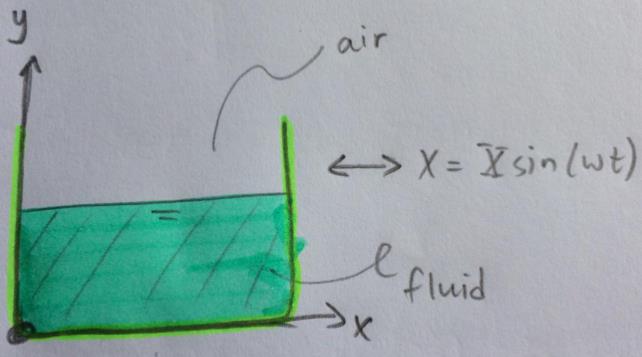 y
air
X = X sin(wt)
ρ fluid
x